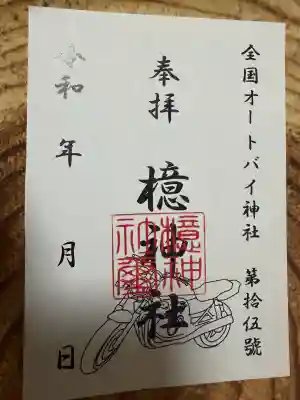 全国オートバイ神社 第拾伍號
奉拝
檍神社
令和 年 月 日